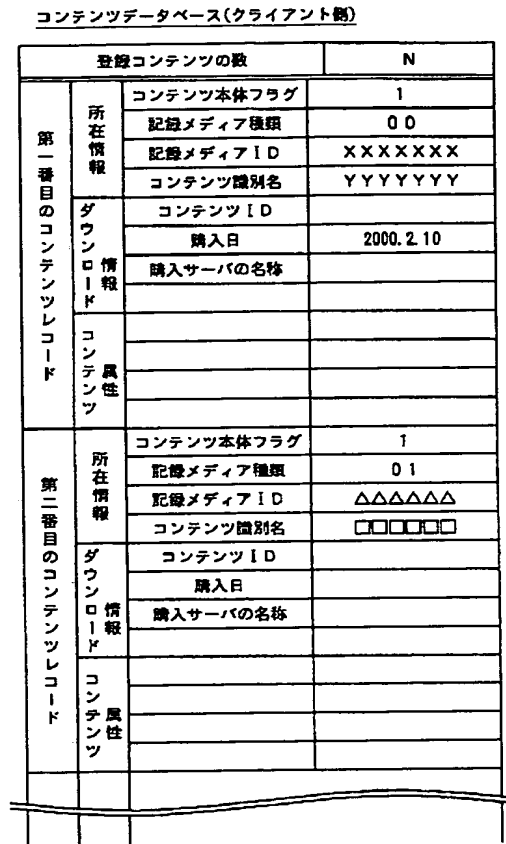 コンテンツデータベース(クライアント側)
登録コンテンツの数 N
第一番目のコンテンツレコード
所在情報
コンテンツ本体フラグ 1
記録メディア種類 00
記録メディアID XXXXXXX
コンテンツ識別名 YYYYYYY
ダウンロード情報
コンテンツID
購入日 2000.2.10
購入サーバの名称
コンテンツ属性
第二番目のコンテンツレコード
所在情報
コンテンツ本体フラグ 1
記録メディア種類 01
記録メディアID △△△△△△
コンテンツ識別名 □□□□□□
ダウンロード情報
コンテンツID
購入日
購入サーバの名称
コンテンツ属性